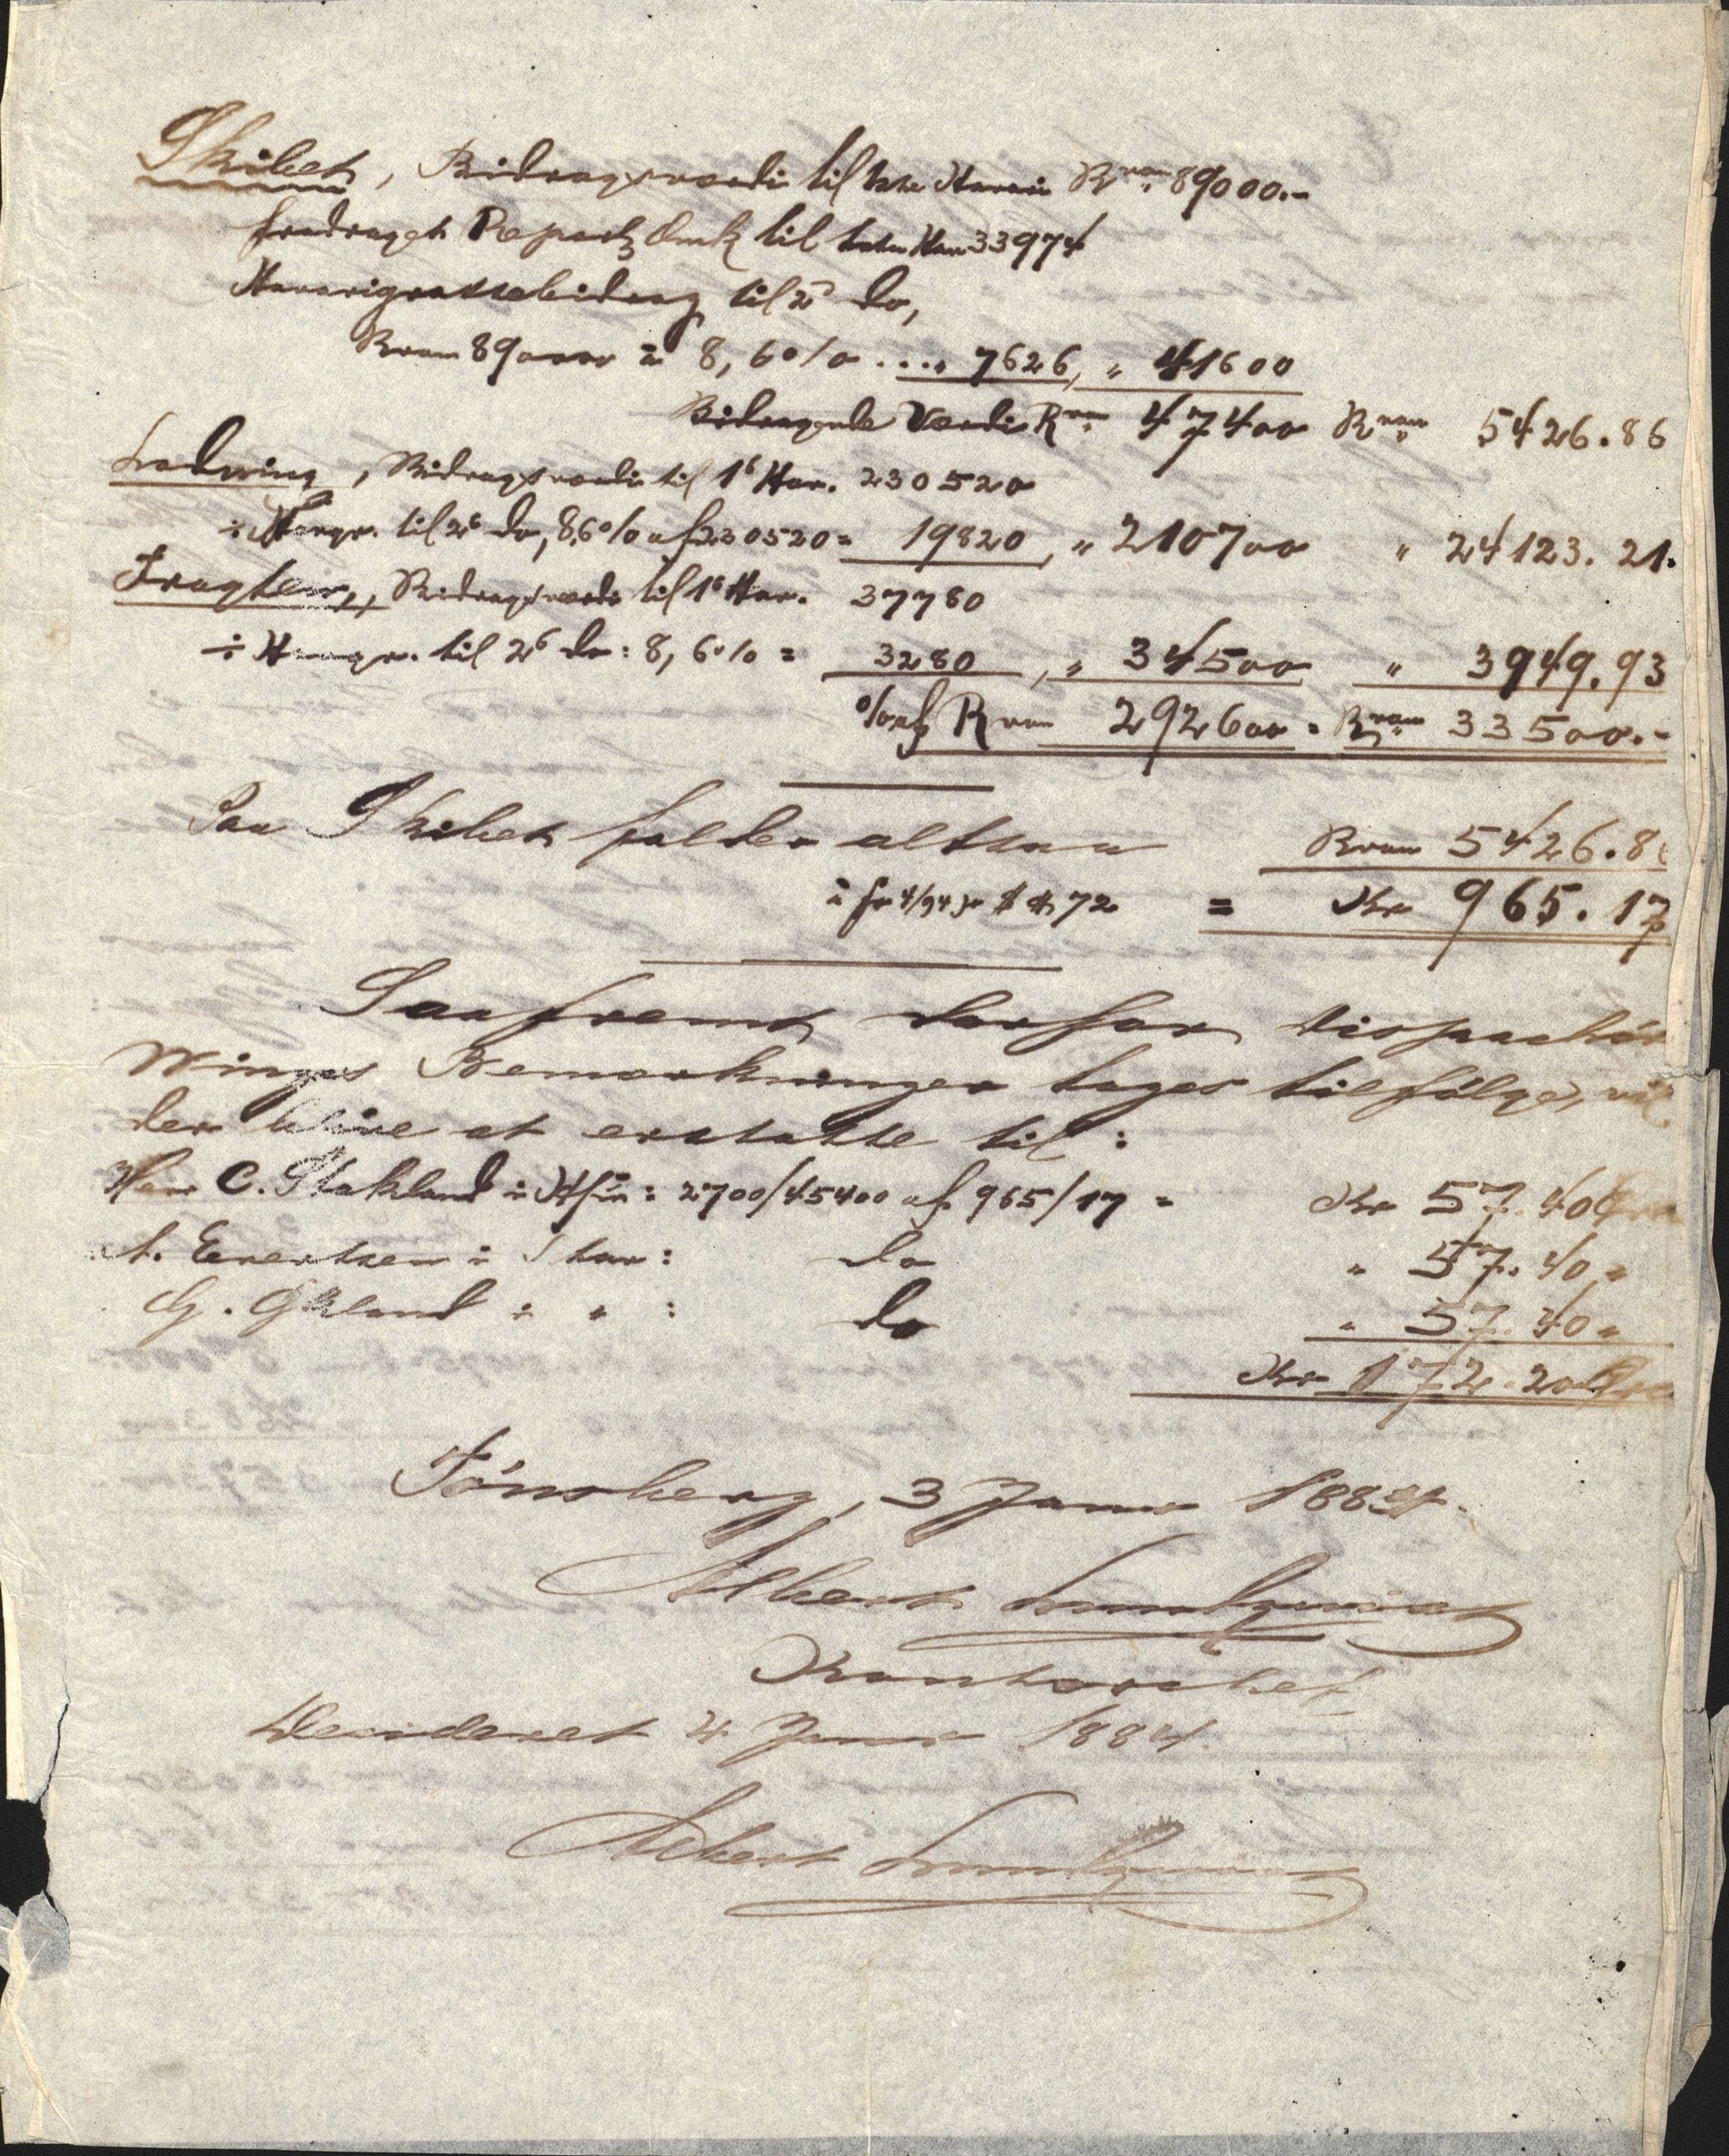 Skibet, Bidragsværdi til 1ste Havari Rvm 89000.-
fradraget Repart Omk til 1ste Hav 33974
Havarigrossebidrag til 2. do,
Rvm 89000 à 8,6% .... 7626, " 41600
Bidragende Værdi Rvm 47400 Rvm 5426.86
Ladning, Bidragsværdi til 1ste Hav. 230520
÷ Havgr. til 2det do, 8,6% af 230520 = 19820, " 210700 " 24123.21.
Fragten, Bidragsværdi til 1ste Hav. 37780
÷ Havgr. til 2det do: 8,6% = 3280, " 34500 " 3949.93
% af Rvm 292600 = Rvm 33500.-
Paa Skibet falder altsaa Rvm 5426.86
à fr 4/94 pr $ à 72 = Kr 965.17
Saafremt derfor Dispachør
Winges Bemærkninger tages tilfølge, vil
der blive at erstatte til:
Herr C. Stakland i Hfjn: 2700/45400 af 965/17 = Kr 57.40 Øre
A. Evertsen i Stav: do " 57.40 "
G. Økland i " : do " 57.40 "
Kr 172.20 Øre
Tönsberg, 3 Januar 1884.
Albert Lundqvist
Kontorchef
Revideret 4 Januar 1884.
Albert Lundqvist